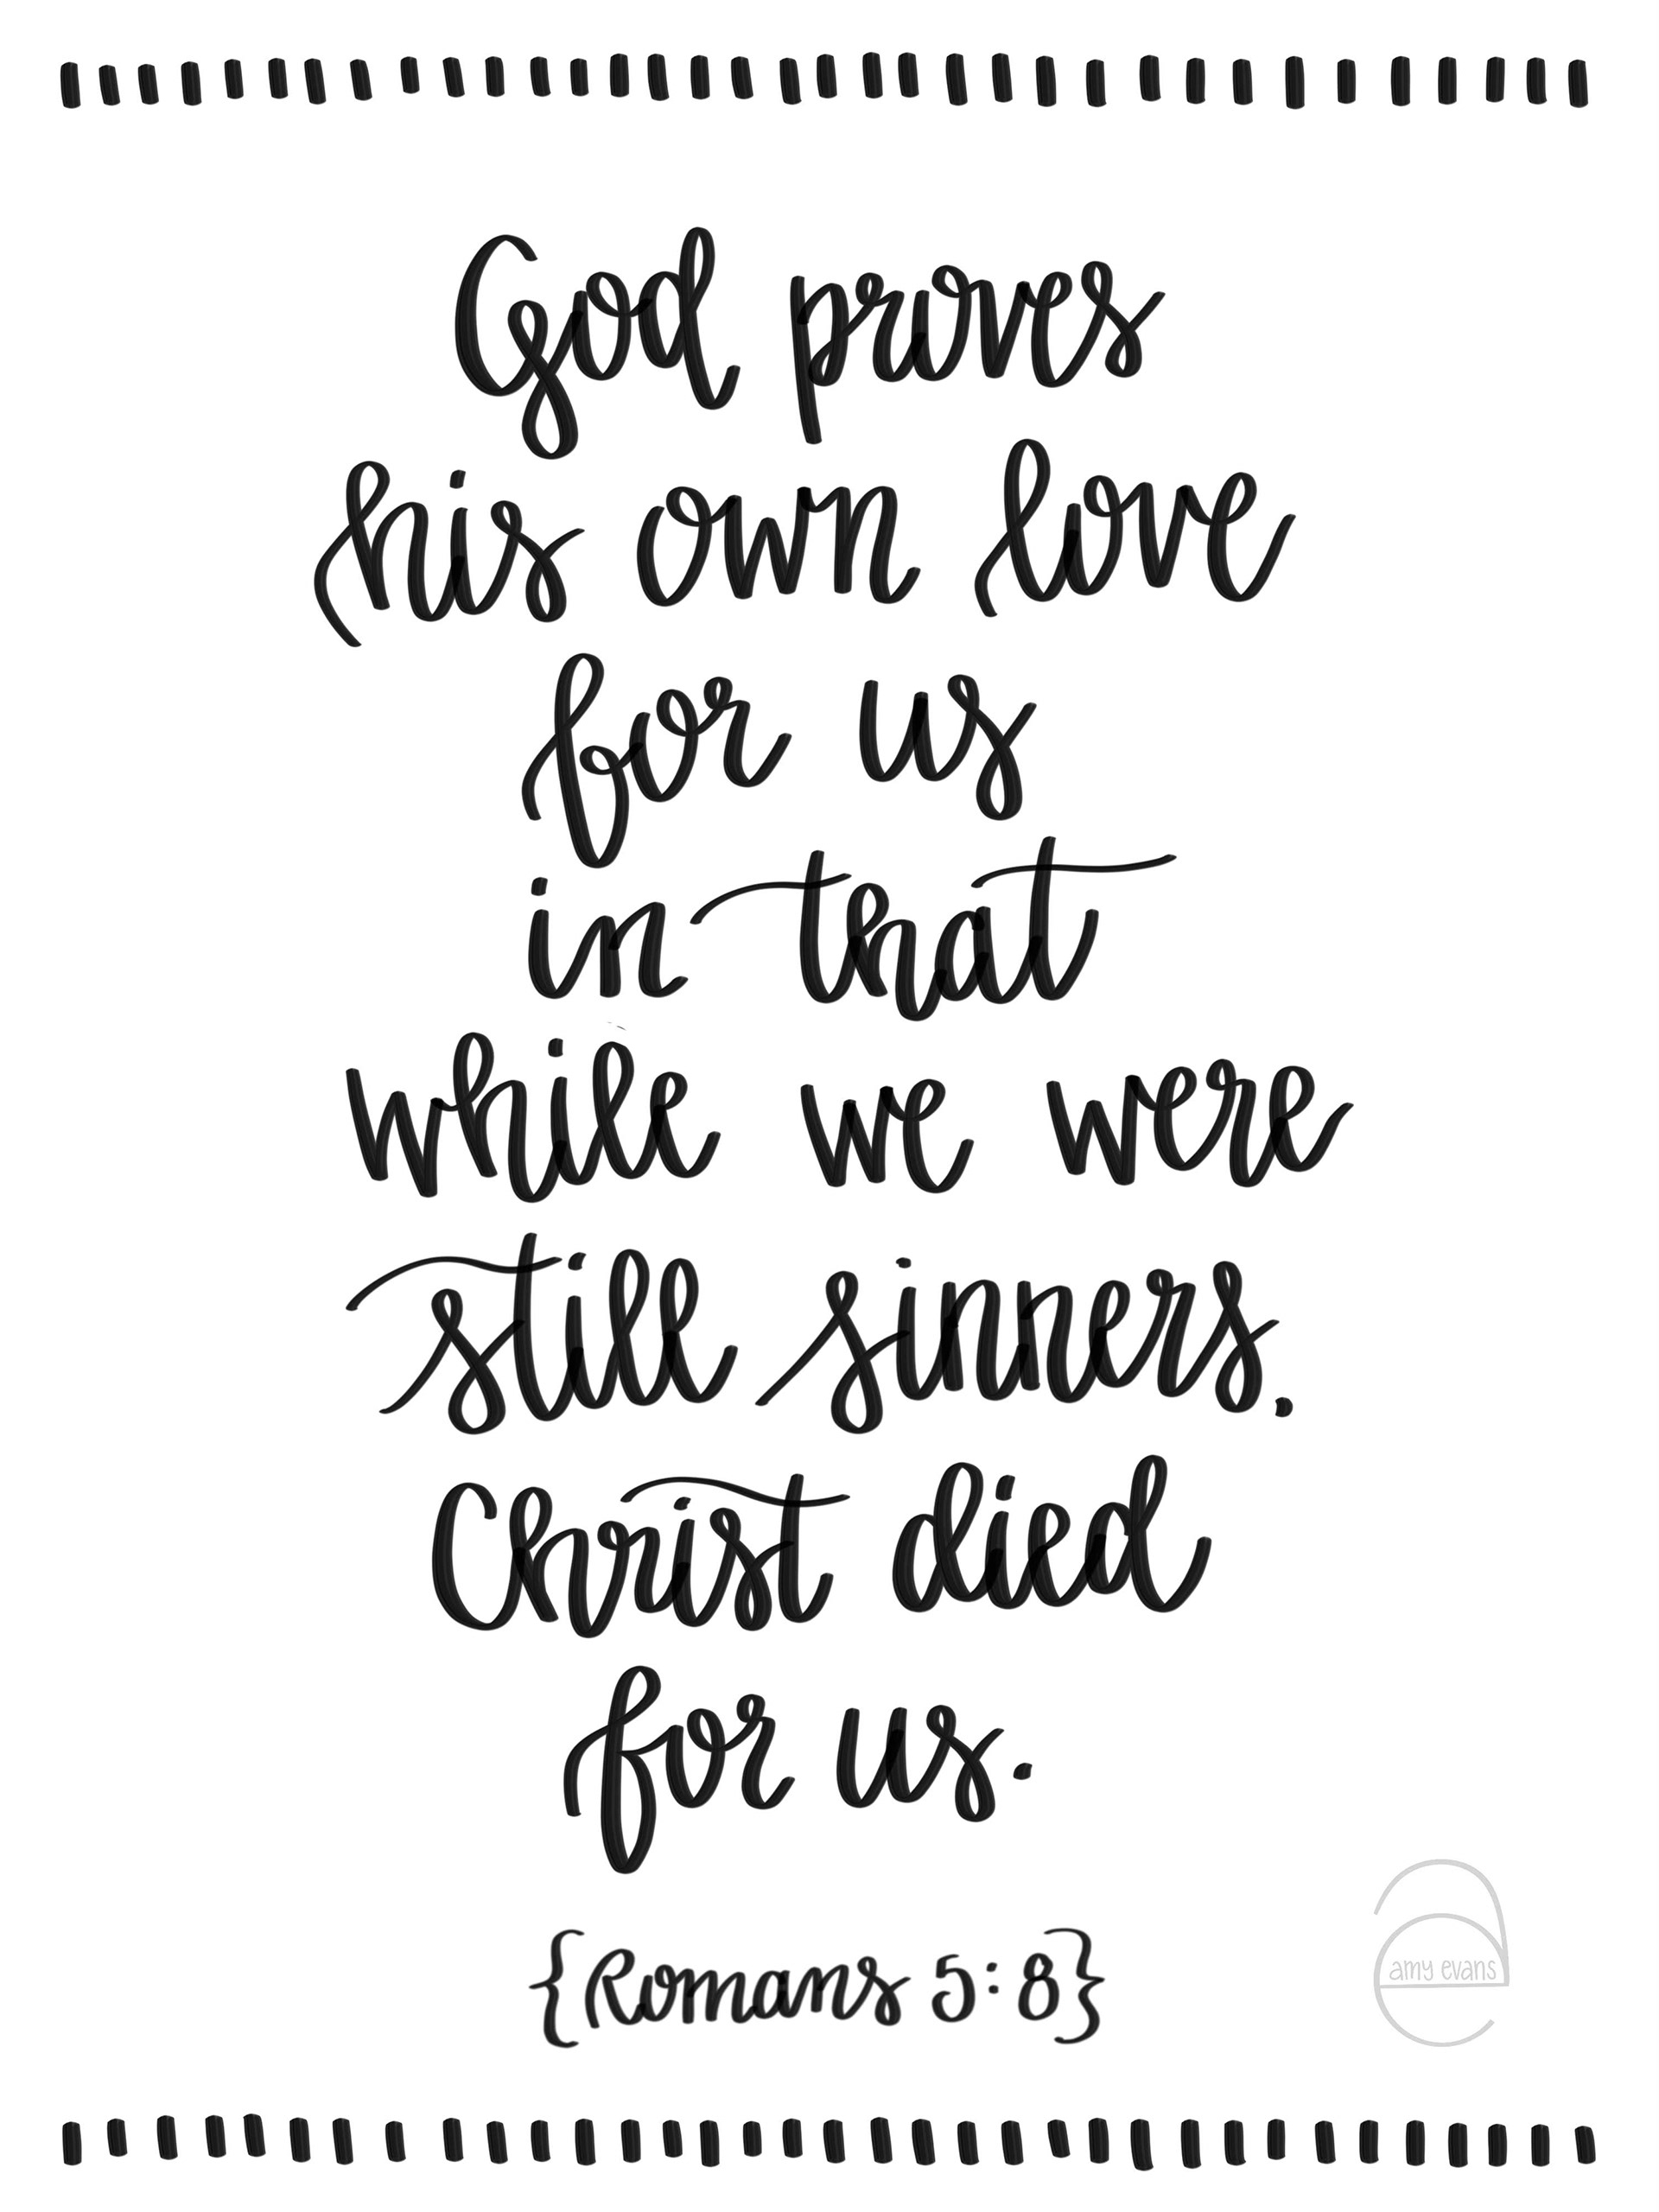 God proves
his own love
for us
in that
while we were
still sinners.
Christ died
for us.
{Romans 5:8}
amy evans